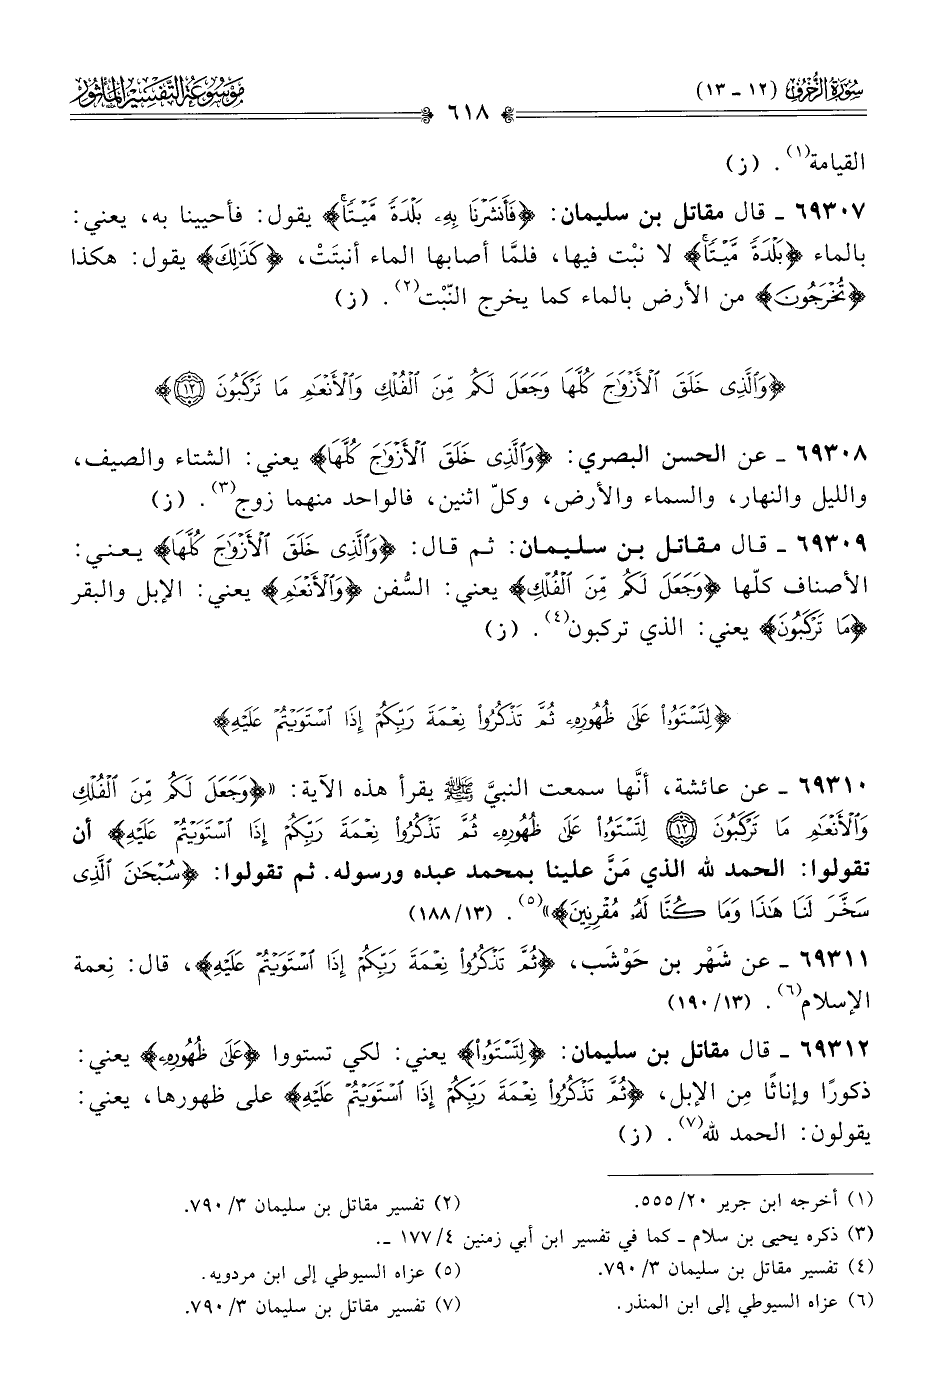 سُورَةُ الزُّخْرُفِ (١٢ - ١٣)
٦١٨
مَوْسُوعَةُ التَّفْسِيرِ المَأْثُورِ
القيامة(١). (ز)
٦٩٣٠٧ - قال مقاتل بن سليمان: ﴿فَأَنشَرْنَا بِهِۦ بَلْدَةً مَّيْتًاۚ﴾ يقول: فأحيينا به، يعني:
بالماء ﴿بَلْدَةً مَّيْتًاۚ﴾ لا نبْت فيها، فلمَّا أصابها الماء أنبتَتْ، ﴿كَذَٰلِكَ﴾ يقول: هكذا
﴿تُخْرَجُونَ﴾ من الأرض بالماء كما يخرج النّبْت(٢). (ز)
﴿وَٱلَّذِى خَلَقَ ٱلْأَزْوَٰجَ كُلَّهَا وَجَعَلَ لَكُم مِّنَ ٱلْفُلْكِ وَٱلْأَنْعَٰمِ مَا تَرْكَبُونَ ١٢﴾
٦٩٣٠٨ - عن الحسن البصري: ﴿وَٱلَّذِى خَلَقَ ٱلْأَزْوَٰجَ كُلَّهَا﴾ يعني: الشتاء والصيف،
والليل والنهار، والسماء والأرض، وكلّ اثنين، فالواحد منهما زوج(٣). (ز)
٦٩٣٠٩ - قال مقاتل بن سليمان: ثم قال: ﴿وَٱلَّذِى خَلَقَ ٱلْأَزْوَٰجَ كُلَّهَا﴾ يعني:
الأصناف كلّها ﴿وَجَعَلَ لَكُم مِّنَ ٱلْفُلْكِ﴾ يعني: السُّفن ﴿وَٱلْأَنْعَٰمِ﴾ يعني: الإبل والبقر
﴿مَا تَرْكَبُونَ﴾ يعني: الذي تركبون(٤). (ز)
﴿لِتَسْتَوُۥا۟ عَلَىٰ ظُهُورِهِۦ ثُمَّ تَذْكُرُوا۟ نِعْمَةَ رَبِّكُمْ إِذَا ٱسْتَوَيْتُمْ عَلَيْهِ﴾
٦٩٣١٠ - عن عائشة، أنَّها سمعت النبيَّ ﷺ يقرأ هذه الآية: «﴿وَجَعَلَ لَكُم مِّنَ ٱلْفُلْكِ
وَٱلْأَنْعَٰمِ مَا تَرْكَبُونَ ١٢ لِتَسْتَوُۥا۟ عَلَىٰ ظُهُورِهِۦ ثُمَّ تَذْكُرُوا۟ نِعْمَةَ رَبِّكُمْ إِذَا ٱسْتَوَيْتُمْ عَلَيْهِ﴾ أن
تقولوا: الحمد لله الذي مَنَّ علينا بمحمد عبده ورسوله. ثم تقولوا: ﴿سُبْحَٰنَ ٱلَّذِى
سَخَّرَ لَنَا هَٰذَا وَمَا كُنَّا لَهُۥ مُقْرِنِينَ﴾»(٥). (١٣/ ١٨٨)
٦٩٣١١ - عن شَهْر بن حَوْشَب، ﴿ثُمَّ تَذْكُرُوا۟ نِعْمَةَ رَبِّكُمْ إِذَا ٱسْتَوَيْتُمْ عَلَيْهِ﴾، قال: نِعمة
الإسلام(٦). (١٣/ ١٩٠)
٦٩٣١٢ - قال مقاتل بن سليمان: ﴿لِتَسْتَوُۥا۟﴾ يعني: لكي تستووا ﴿عَلَىٰ ظُهُورِهِۦ﴾ يعني:
ذكورًا وإناثًا مِن الإبل، ﴿ثُمَّ تَذْكُرُوا۟ نِعْمَةَ رَبِّكُمْ إِذَا ٱسْتَوَيْتُمْ عَلَيْهِ﴾ على ظهورها، يعني:
يقولون: الحمد لله(٧). (ز)
(١) أخرجه ابن جرير ٢٠/ ٥٥٥.
(٢) تفسير مقاتل بن سليمان ٣/ ٧٩٠.
(٣) ذكره يحيى بن سلام - كما في تفسير ابن أبي زمنين ٤/ ١٧٧ -.
(٤) تفسير مقاتل بن سليمان ٣/ ٧٩٠.
(٥) عزاه السيوطي إلى ابن مردويه.
(٦) عزاه السيوطي إلى ابن المنذر.
(٧) تفسير مقاتل بن سليمان ٣/ ٧٩٠.